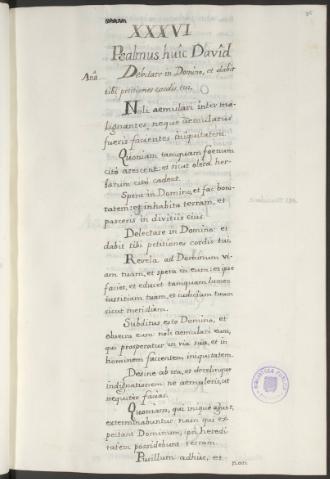 XXXVI
Psalmus huic David
Anã Delectare in Domino, et dabit
tibi petitiones cordis tui.
Noli aemulari inter ma-
lignantes, neque aemulatus
fueris facientes iniquitatem.
Quoniam tamquam foenum
citò arescent, et sicut olera her-
barum citò cadent.
Spera in Domino, et fac boni-
tatem: et inhabita terram, et
pasceris in divitiis eius.
Delectare in Domino: et
dabit tibi petitiones cordis tui.
Revela ad Dominum vi-
am tuam, et spera in eum: et ipse
faciet, et educet tamquam lumen
iustitiam tuam, et iudicium tuum
sicut meridiem.
Subditus esto Domino, et
observa eum: noli aemulari eum,
qui prosperatur in via sua, et in
hominem facientem iniquitatem.
Desine ab ira, et derelinque
indignationem: ne aemuleris, ut
nequitèr facias.
Quoniam, qui iniquè agunt,
exterminabuntur: nam qui ex-
pectant Dominum, ipsi heredi-
tatem possidebunt terram.
Pusillum adhuc, et
non